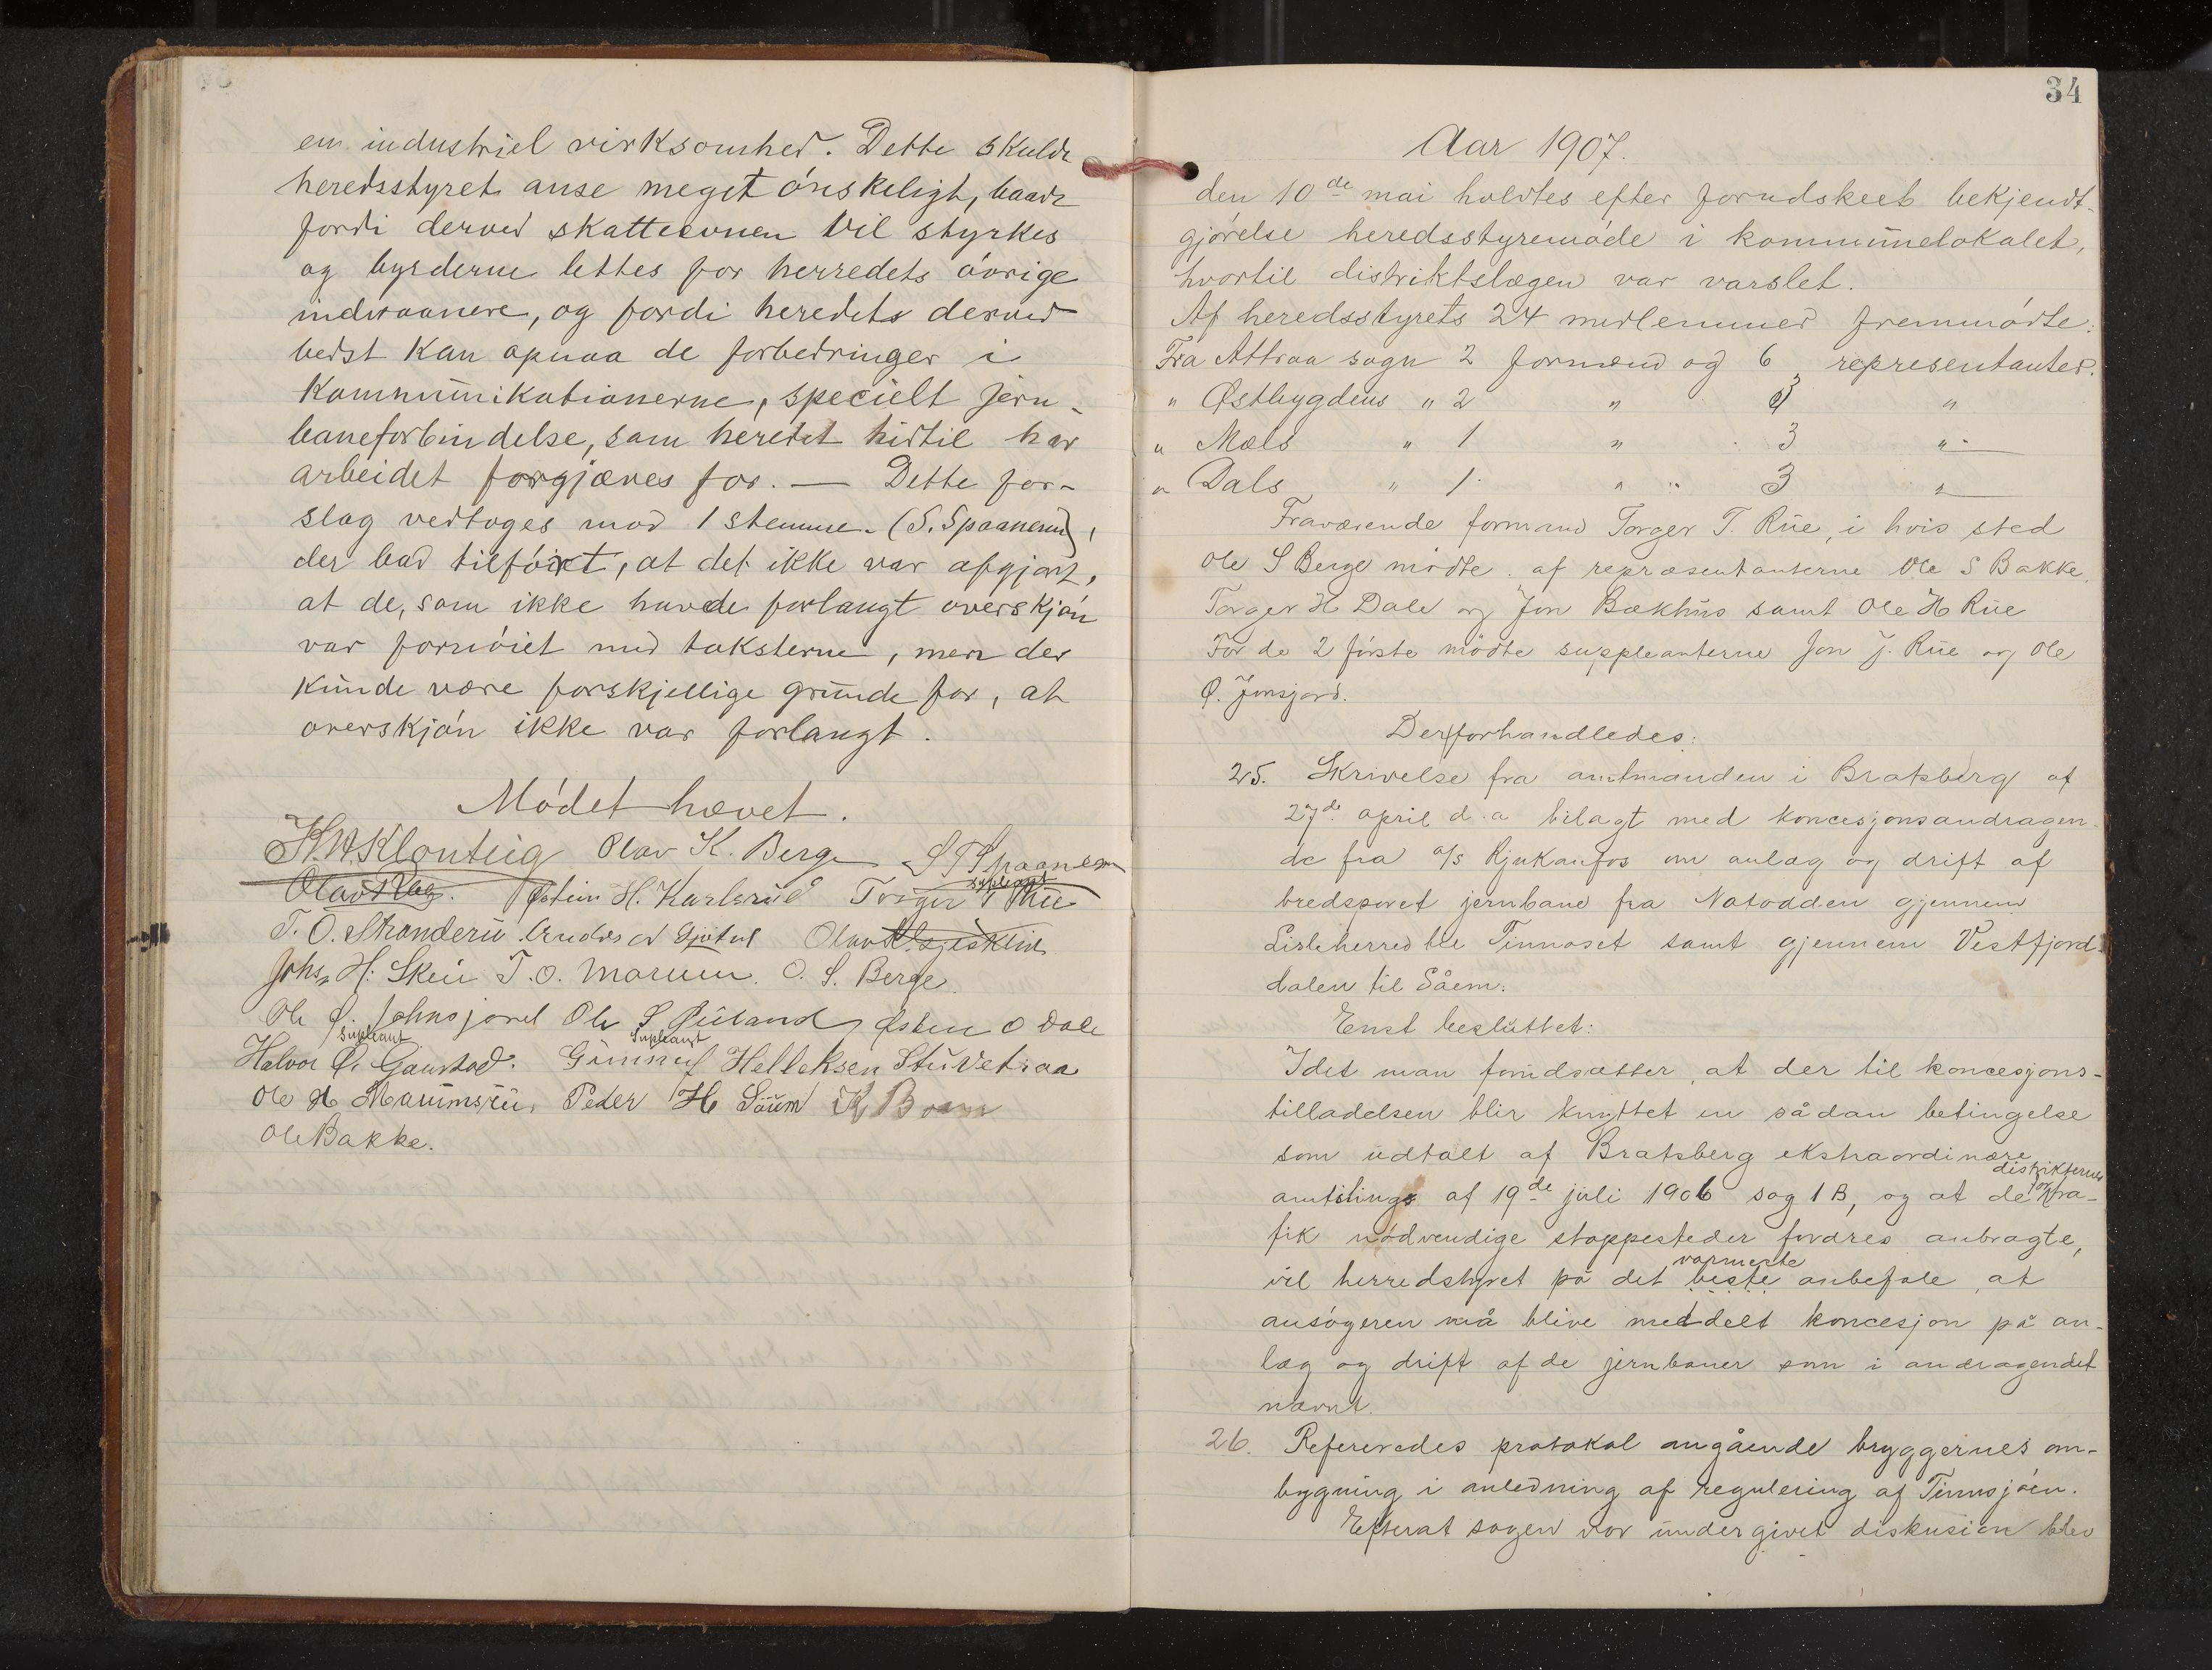 en industriel virksomhed. Dette skulde
heredsstyret anse meget ónskeligt, baade
fordi derved skatteevnen vil styrkes
og byrderne lettes for herredets óvrige
indvaanere, og fordi heredets derved
bedst kan opnaa de forbedringer i
kommunikationerne, specielt jern-
baneforbindelse, som heredet hidtil har
arbeidet forgjæves for. — Dette for-
slag vedtoges mod 1 stemme. (S. Spaanem),
der bad tilfórt, at det ikke var afgjort,
at de, som ikke havde forlangt overskjón
var fornóiet med taksterne, men der
kunde være forskjellige grunde for, at
overskjón ikke var forlangt.
Módet hævet.
H.H. Klonteig Olav K. Berge S T Spaanem
Østein H. Karlsrud Torger T Rue
suppleant
T. O. Stranderu
Johs. H. Skeie T. O. Marum. O. S. Berge.
Ole Ø. Johnsjord Ole S Østen O Dale
supleant Supleant
Halvor Ø. Gaustad. Gunnuf Helleksen Stuvetraa
Ole H Marumsrui, Peder H Såum K Boen
Ole Bakke.
34
Aar 1907.
den 10de mai holdtes efter forudskeet bekjendt-
gjórelse heredsstyremóde i kommunelokalet,
hvortil distriktslægen var varslet.
Af heredsstyrets 24 medlemmer fremmódte:
Fra Attraa sogn 2 formænd og 6 representanter.
" Østbygdens " 2 " 3 "
" Mæls " 1 " 3 "
" Dals " 1 " " 3 "
Fraværende formand Torger T. Rue, i hvis sted
Ole S Berge mödte. af repræsentanterne Ole S Bakke,
Torger H Dale og Jon Bækhus samt Ole H Rue
For de 2 förste mödte suppleanterne Jon J. Rue og Ole
Ø. Jonsjord.
Der forhandledes:
25. Skrivelse fra amtmanden i Bratsberg af
27de april d.a bilagt med koncesjonsandragen-
de fra a/s Rjukanfos om anlæg og drift af
bredsporet jernbane fra Notodden gjennem
Lisleherred til Tinnoset samt gjennem Vestfjord-
dalen til Såem.
Enst besluttet:
Idet man forudsætter, at der til koncesjons-
tilladelsen blir knyttet en sådan betingelse
som udtalt af Bratsberg ekstraordinære
distrikternes
amtsting af 19de juli 1906 sag 1 B, og at de for tra-
fik nödvendige stoppesteder fordres anbragte,
varmeste
vil herredstyret på det beste anbefale, at
ansögeren må blive meddelt koncesjon på an-
læg og drift af de jernbaner som i andragendet
nævnt.
26. Refereredes protokol angående bryggernes om-
bygning i anledning af regulering af Tinnsjöen.
Efterat sagen var undergivet diskusion blev